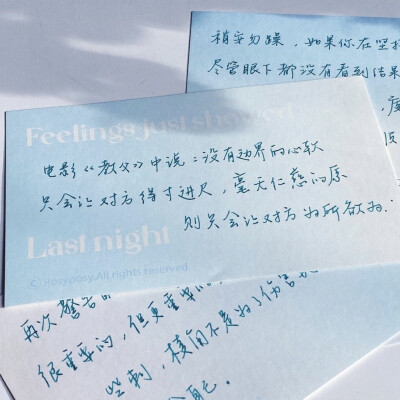 稍安勿躁，如果你在坚持
尽管眼下都没有看到结果
Feelings just shared
电影《教父》中说：没有边界的心软
只会让对方得寸进尺，毫无仁慈的原
则只会让对方为所欲为.
Last night
© Rosyposy.All rights reserved
再次警告
很重要的，但更重要的，
些刺，核自不是为了伤害